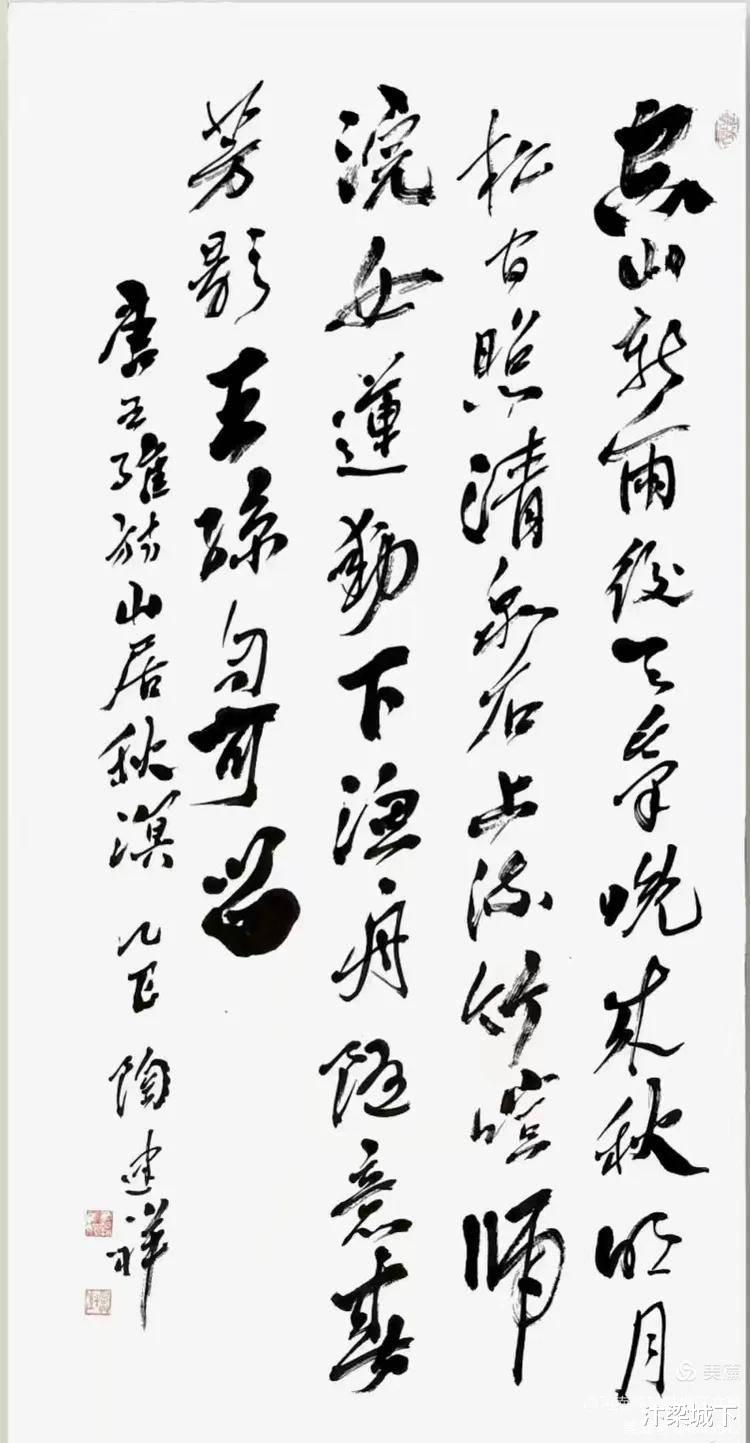 空山新雨後天氣晚来秋明月
松间照清泉石上流竹喧帰
浣女蓮動下漁舟随意春
芳歇王孫自可留
唐王維詩山居秋溟 陶建祥
美篇
汴梁城下